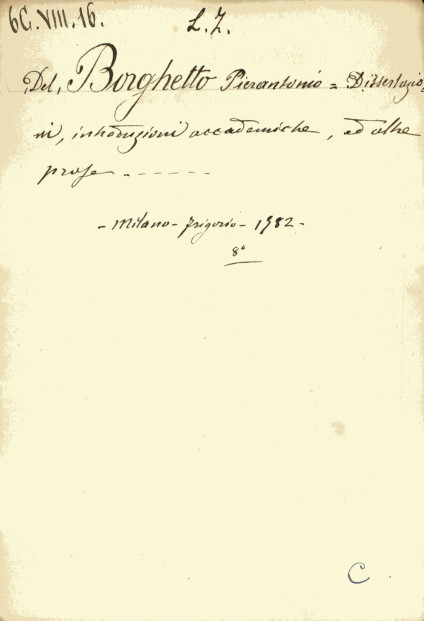 6C.VIII.16.
L.Z.
Del Borghetto Pierantonio = Dissertazio
ni, introduzioni accademiche, ed altre
prose - - - - - -
- Milano - Frigerio - 1752 -
8°
C